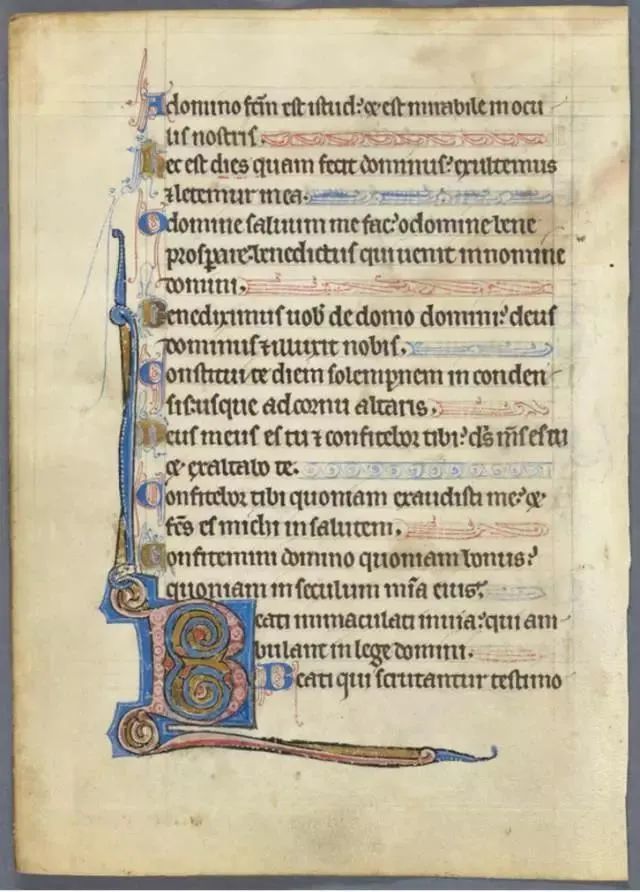 A domino fc̄m est istud: ⁊ est mirabile in ocu
lis nostris.
hec est dies quam fecit dominus: exultemus
⁊ letemur in ea.
O domine saluum me fac: o domine bene
prosꝑare: benedictus qui uenit in nomine
domini.
Benediximus uob̄ de domo domini: deus
dominus ⁊ illuxit nobis.
Constitui te diem solempnem in conden
sis: usque ad cornu altaris.
Deus meus es tu ⁊ confitebor tibi: ds̄ m̄s es tu
⁊ exaltabo te.
Confitebor tibi quoniam exaudisti me: ⁊
fc̄s es michi in salutem.
Confitemini domino quoniam bonus:
quoniam in seculum mīa eius.
Beati inmaculati in uia: qui am
bulant in lege domini.
Beati qui scrutantur testimo